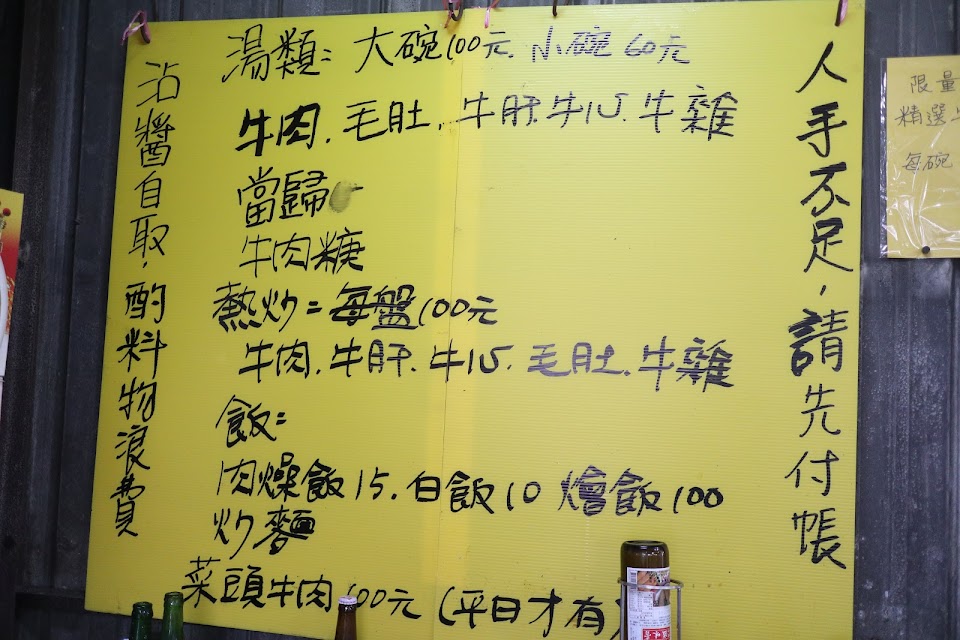 湯類: 大碗100元 小碗60元
牛肉. 毛肚. 牛肝. 牛心. 牛雜
當歸
牛肉糖
熱炒=每盤100元
牛肉. 牛肝. 牛心. 毛肚. 牛雜
飯=
肉燥飯15. 白飯10 燴飯100
炒麵
菜頭牛肉100元(平日才有
沾醬自取,酌料物浪費
人手不足,請先付帳
限量
精選
每碗